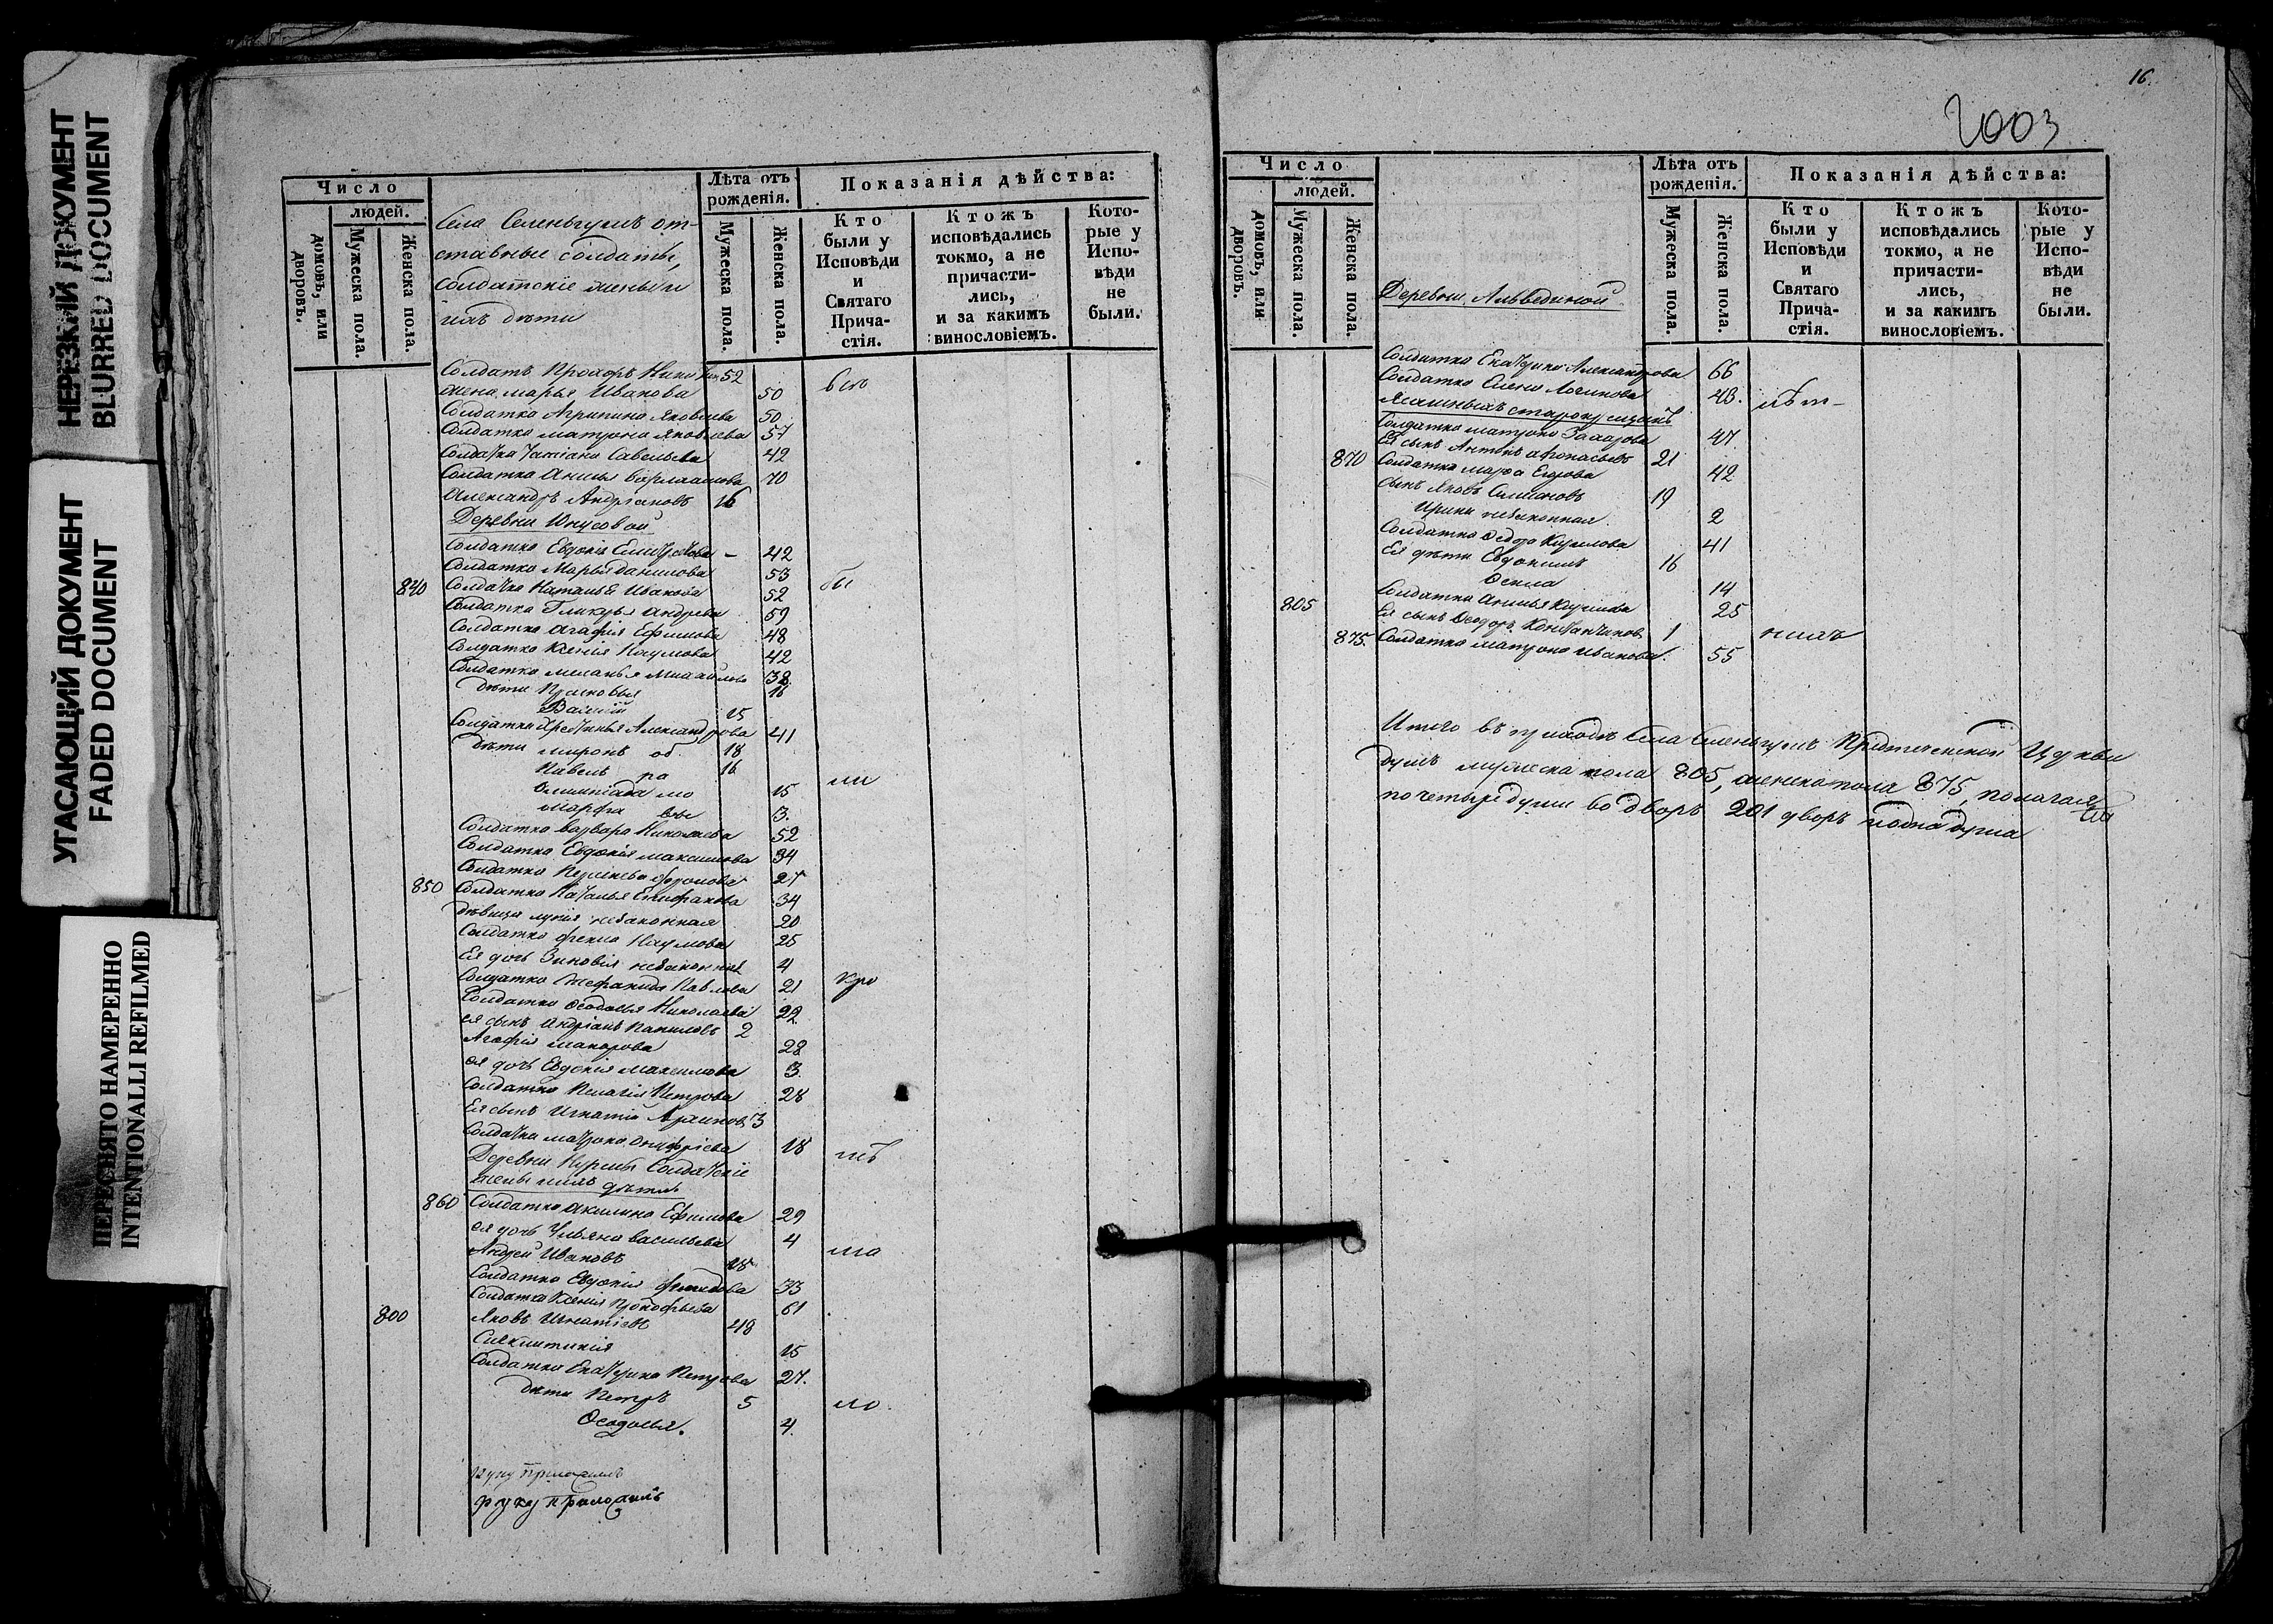 НЕРЕЗКИЙ ДОКУМЕНТ
BLURRED DOCUMENT
УГАСАЮЩИЙ ДОКУМЕНТ
FADED DOCUMENT
ПЕРЕСНЯТО НАМЕРЕННО
INTENTIONALLI REFILMED
Число
людей.
домовъ, или дворовъ.
Мужеска пола.
Женска пола.
Села Селенгушъ от-
ставные солдаты,
солдатскіе жены и
ихъ дѣти
Лѣта отъ рожденія.
Мужеска пола.
Женска пола.
Показанія дѣйства:
Кто были у Исповѣди и Святаго Прича-стія.
Ктожъ исповѣдались токмо, а не причасти-лись, и за какимъ винословіемъ.
Кото-рые у Испо-вѣди не были.
Солдатъ 52
жена марья Иванова 50
Солдатка Агрипина Яковлева 50
Солдатка матрона Яковлева 57
Солдатка Татіана Савельева 42
Солдатка Анисья варлаамова 70
Александръ Андріановъ 16
Деревни Юнусовой
Солдатка Евдокія 42
Солдатка Марья данилова 53 бы
840 Солдатка Наталья Иванова 52
Солдатка Гликерья Андреева 59
Солдатка Агафія Ефимова 48
Солдатка Ксенія Наумова 42
Солдатка меланья михайлова 38
дѣти Прасковья 16
Василій 15
Солдатка Александрова 41
дѣти миронъ 18
Павелъ па 16
Олимпіада мо 15 ли
марфа 3.
Солдатка варвара Николаева 52
Солдатка Евдокія максимова 34
Солдатка 27
850 Солдатка Наталья Епифанова 34
дѣвица лукія незаконная 20
Солдатка фекла Наумова 25
Ея дочь Зиновія незаконная 4
Солдатка Стефанида Павлова 21 кро
Солдатка Ѳеодосья Николаева 22
ея сынъ Андріанъ 2
Агафія макарова 28
ея дочь Евдокія максимова 3.
Солдатка Пелагія Петрова 28
Ея сынъ Игнатій 3
Солдатка матрона онуфріева 18 мѣ
Деревни Солдатскіе
жены и ихъ дѣти
860 Солдатка акилина Ефимова 29
ея дочь Ульяна васильева 4
Андрей Ивановъ 18
Солдатка Евдокія 33
Солдатка Ксенія Прокофьева 61
800 Яковъ Игнатіевъ 48
Синклитикія 15
Солдатка Екатерина Петрова 27.
дѣти Петръ 5
Ѳеодосья. 4.
руку приложилъ
руку приложилъ
16.
2003
Число
людей.
домовъ, или дворовъ.
Мужеска пола.
Женска пола.
Деревни Альвединой
Лѣта отъ рожденія.
Мужеска пола.
Женска пола.
Показанія дѣйства:
Кто были у Исповѣди и Святаго Прича-стія.
Ктожъ исповѣдались токмо, а не причасти-лись, и за какимъ винословіемъ.
Кото-рые у Испо-вѣди не были.
Солдатка Екатерина Александрова 66
Солдатка Елена Логинова 43.
Солдатка матрона Захарова 47
Ея сынъ Антонъ афонасьевъ 21
870 Солдатка марфа Егорова 42
сынъ Яковъ 19
Ирина незаконная 2
Солдатка Ѳедора Кирилова 41
Ея дѣти Евдокимъ 16
Ѳекла 14
805 Солдатка Анисья Кирилова 25
Ея сынъ Ѳеодоръ 1 нихъ
875. Солдатка матрона иванова. 55
Итого въ приходѣ Села Селенгушъ Предтеченской Церкви
душъ мужеска пола 805, женска пола 875, полагая
по четыре души во дворъ 201 дворъ